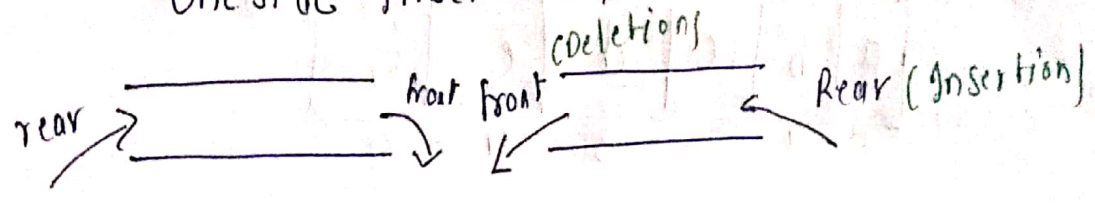 (Deletion)
rear front front Rear (Insertion)